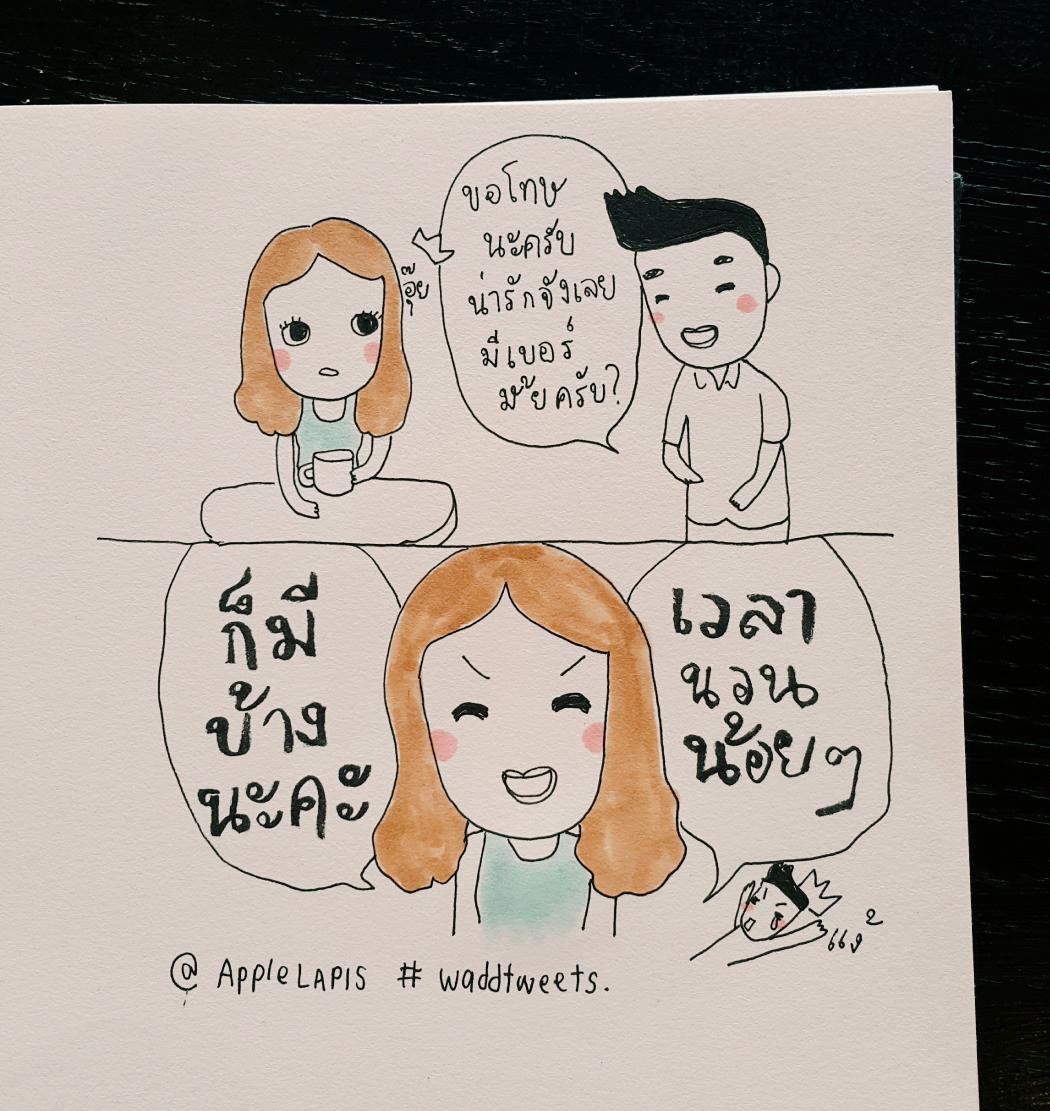 ขอโทษ
นะครับ
น่ารักจังเลย
มีเบอร์
ม๊ัยครับ?
อุ๊ย
ก็มี
บ้าง
นะคะ
เวลา
นอน
น้อยๆ
@ AppleLAPIS # waddtweets.